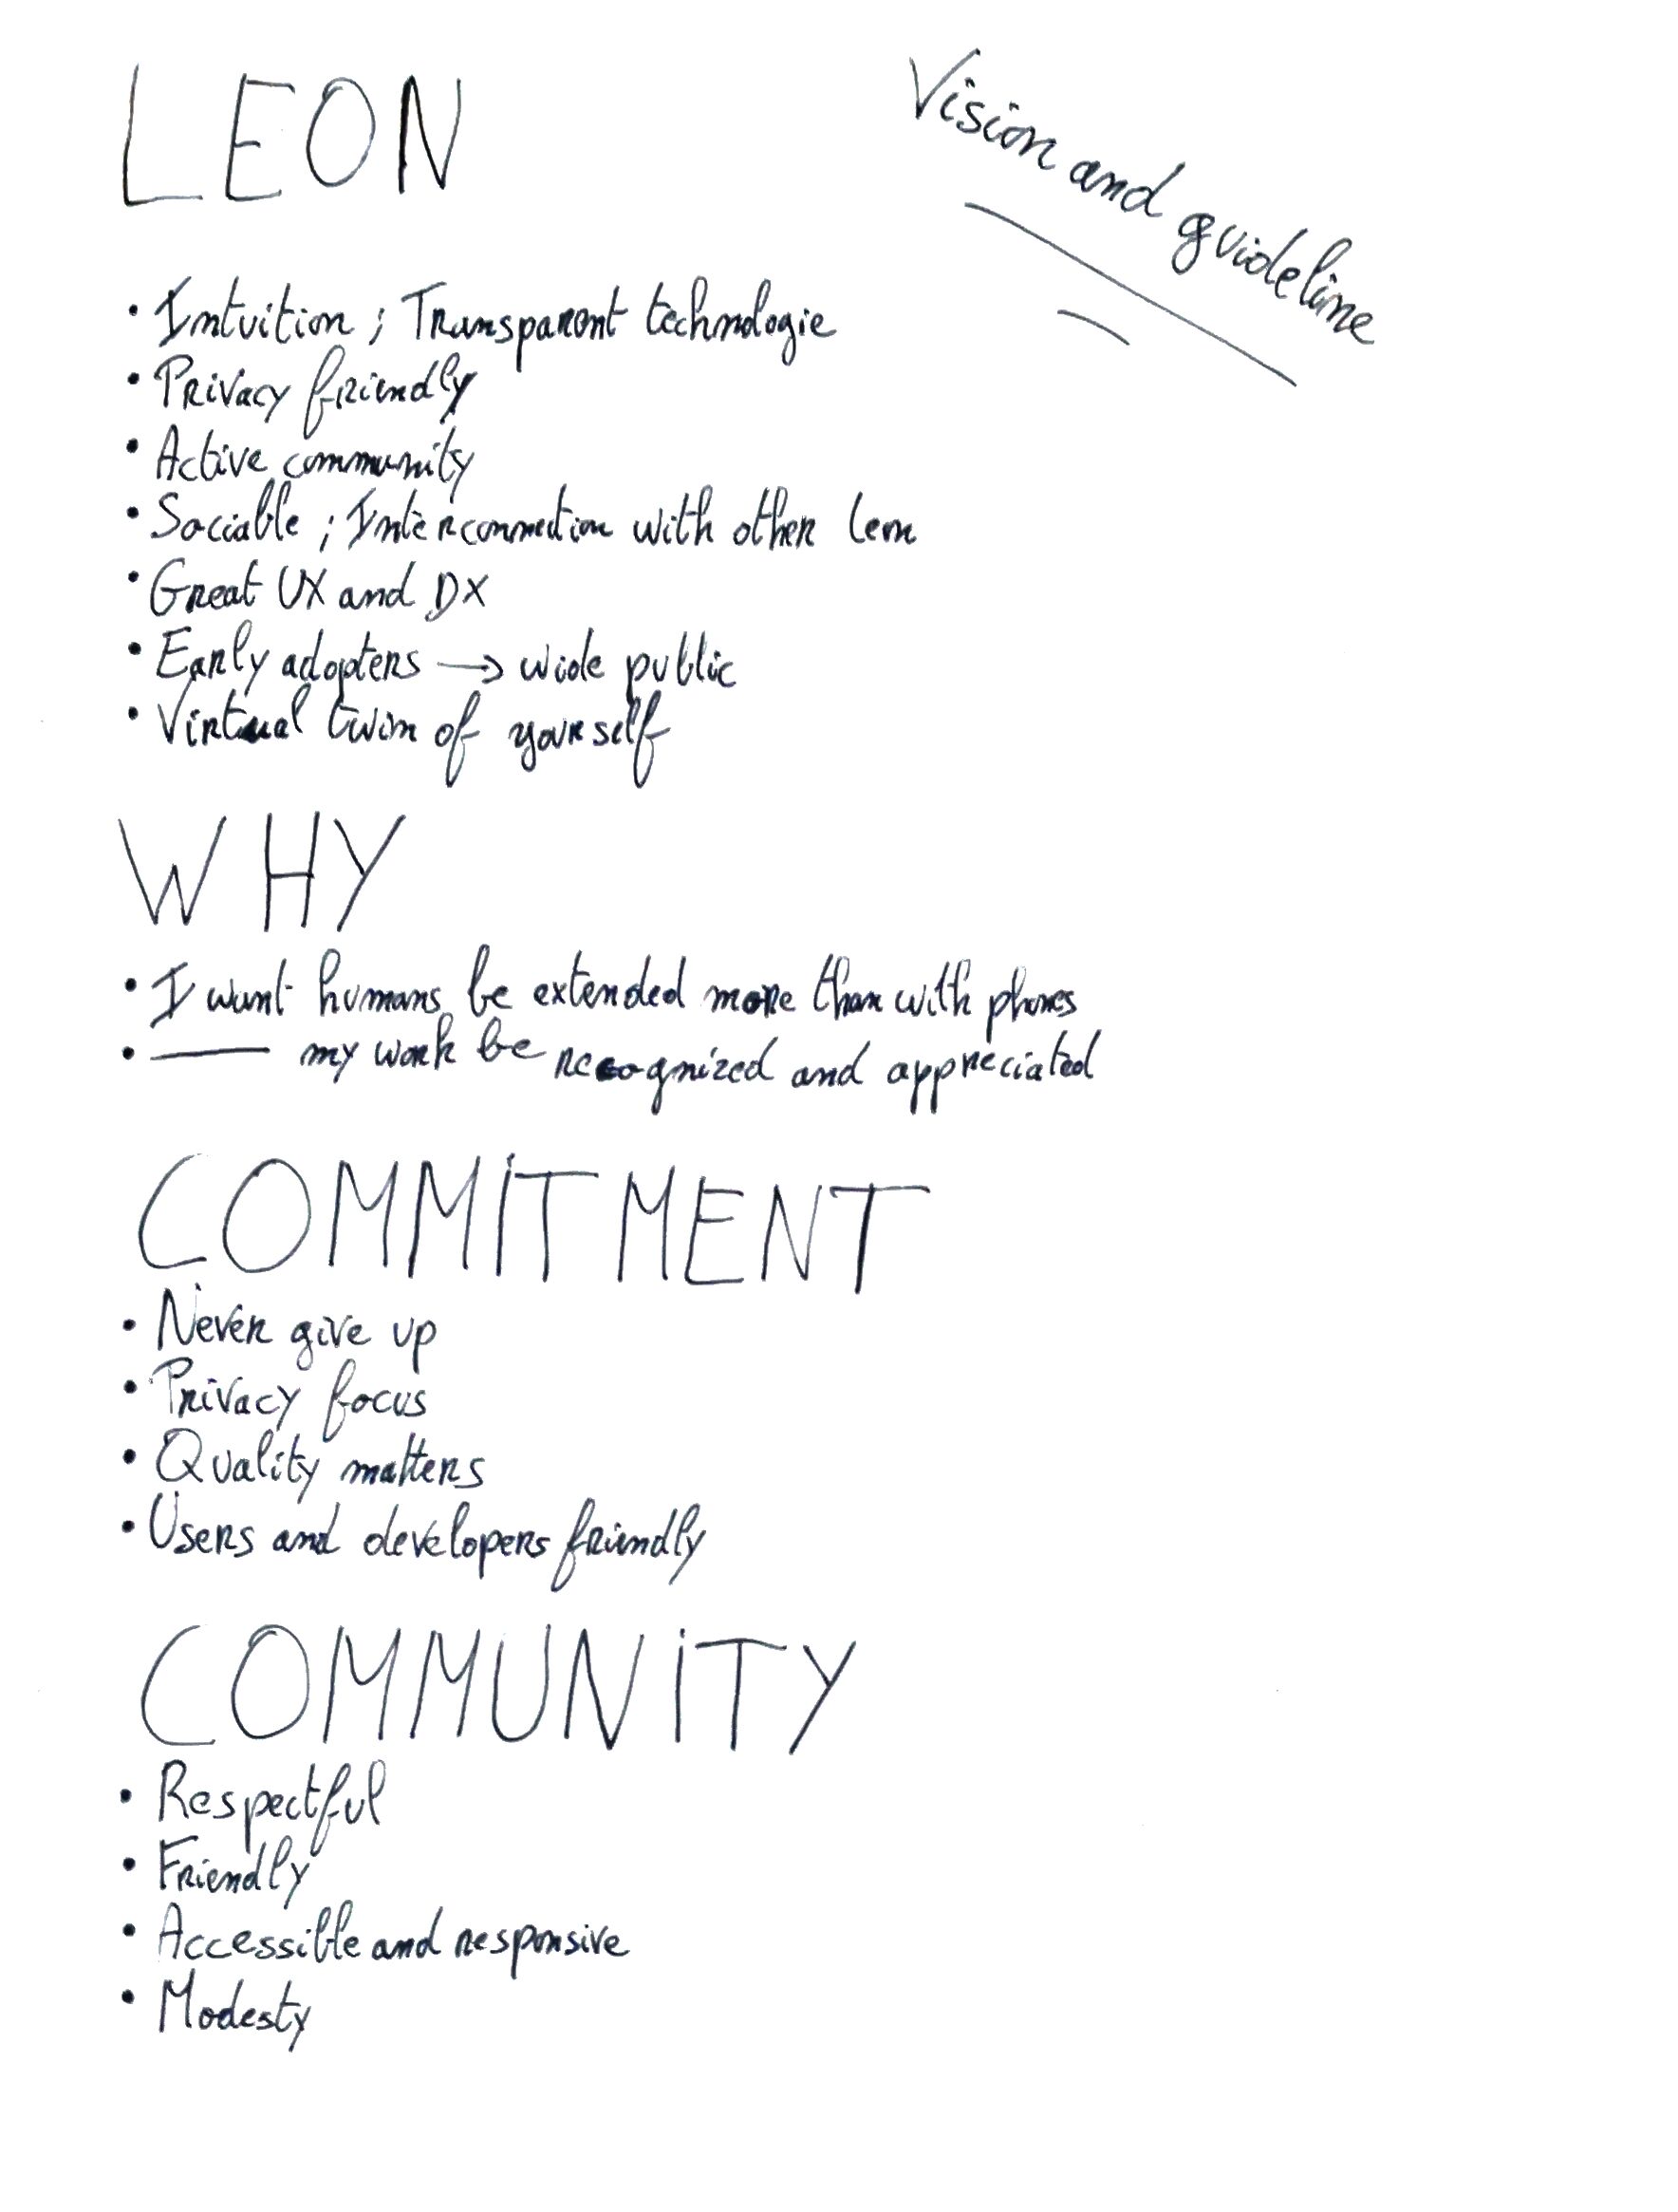 LEON
Vision and guideline
• Intuition ; Transparent technologie
• Privacy friendly
• Active community
• Sociable ; Interconnection with other leon
• Great UX and DX
• Early adopters → wide public
• Virtual twin of yourself
WHY
• I want humans be extended more than with phones
• —— my work be recognized and appreciated
COMMITMENT
• Never give up
• Privacy focus
• Quality matters
• Users and developers friendly
COMMUNITY
• Respectful
• Friendly
• Accessible and responsive
• Modesty